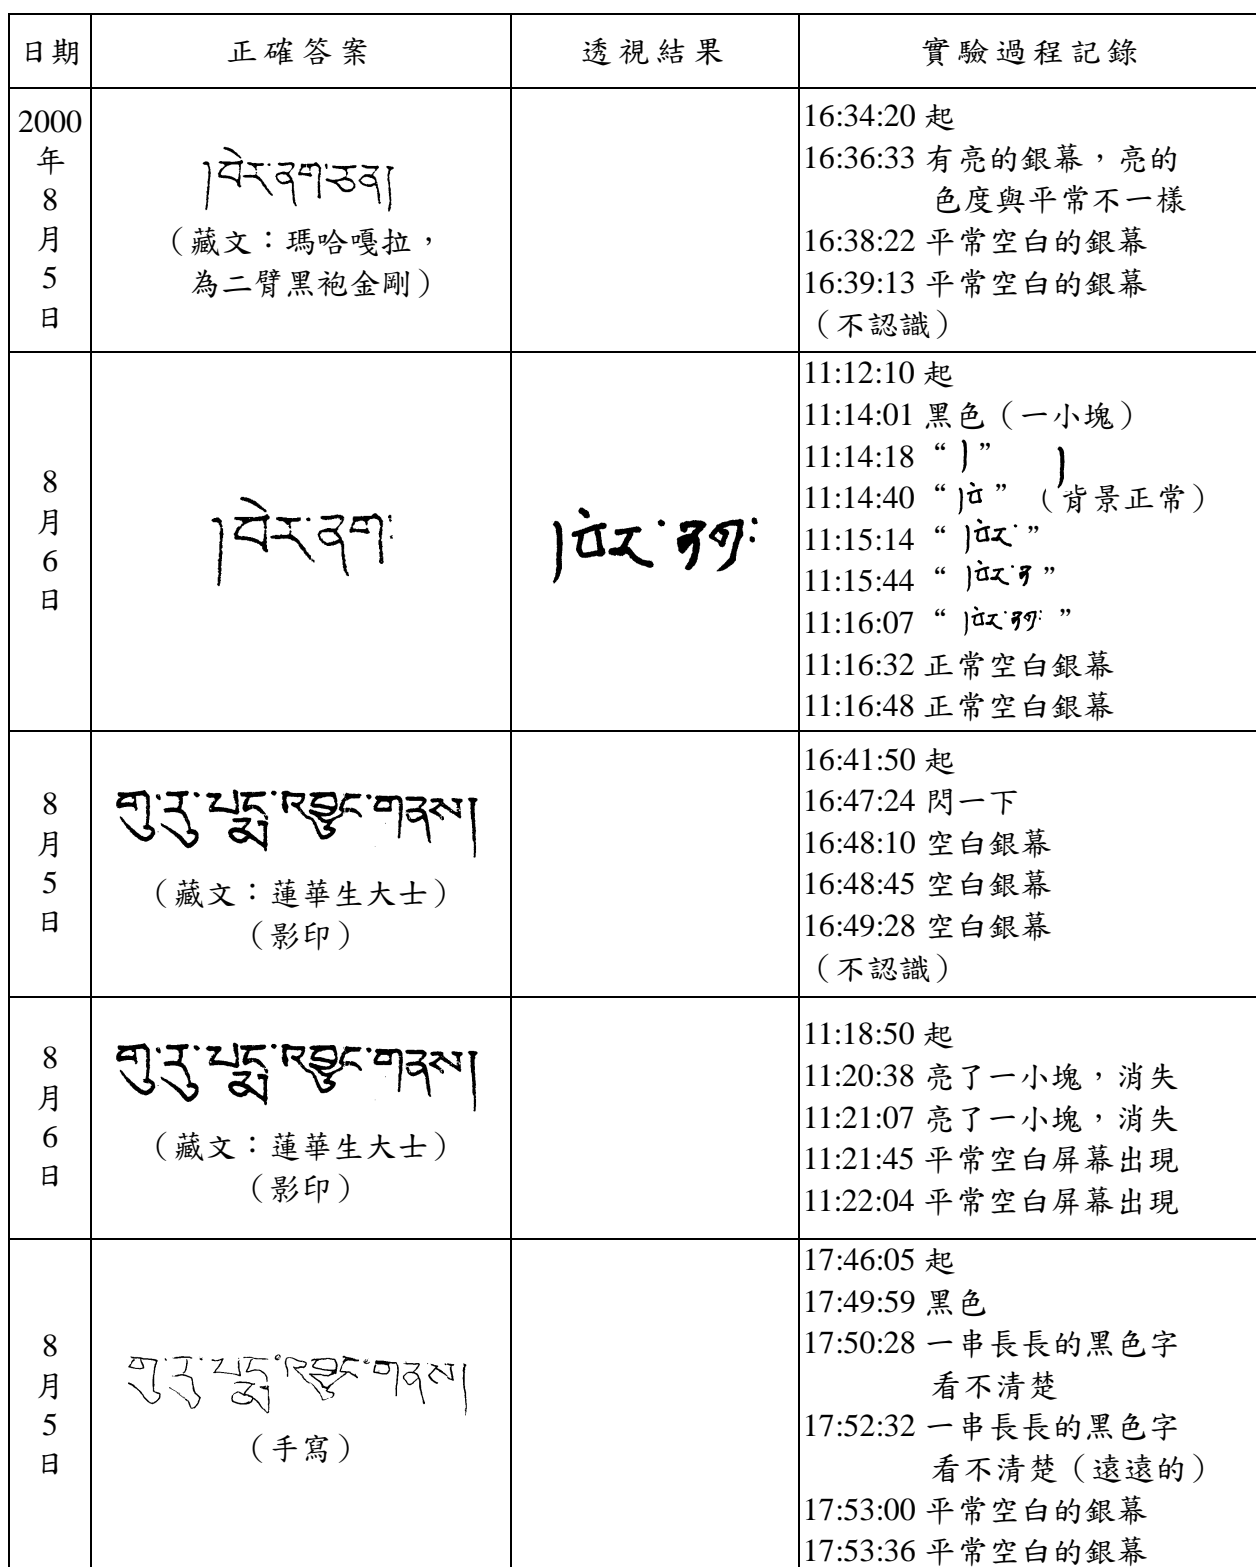 日期 正確答案 透視結果 實驗過程記錄
2000
年
8
月
5
日
།བེར་ནག་ཅན།
（藏文：瑪哈嘎拉，
為二臂黑袍金剛）
16:34:20 起
16:36:33 有亮的銀幕，亮的
色度與平常不一樣
16:38:22 平常空白的銀幕
16:39:13 平常空白的銀幕
（不認識）
8
月
6
日
།བེར་ནག
11:12:10 起
11:14:01 黑色（一小塊）
11:14:18 “ ། ”
11:14:40 “ ” （背景正常）
11:15:14 “ ”
11:15:44 “ ”
11:16:07 “ ”
11:16:32 正常空白銀幕
11:16:48 正常空白銀幕
8
月
5
日
གུ་རུ་པདྨ་འབྱུང་གནས།
（藏文：蓮華生大士）
（影印）
16:41:50 起
16:47:24 閃一下
16:48:10 空白銀幕
16:48:45 空白銀幕
16:49:28 空白銀幕
（不認識）
8
月
6
日
གུ་རུ་པདྨ་འབྱུང་གནས།
（藏文：蓮華生大士）
（影印）
11:18:50 起
11:20:38 亮了一小塊，消失
11:21:07 亮了一小塊，消失
11:21:45 平常空白屏幕出現
11:22:04 平常空白屏幕出現
8
月
5
日
གུ་རུ་པདྨ་འབྱུང་གནས།
（手寫）
17:46:05 起
17:49:59 黑色
17:50:28 一串長長的黑色字
看不清楚
17:52:32 一串長長的黑色字
看不清楚（遠遠的）
17:53:00 平常空白的銀幕
17:53:36 平常空白的銀幕